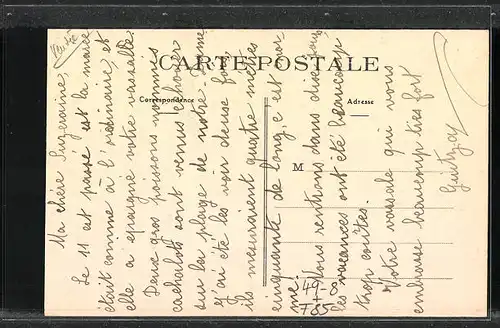 Ma chère Suzeraine,
Le 11 est passé et la marée
était comme à l'ordinaire, et
elle a épargné votre vassalle.
Deux gros poissons nommés
cachalots sont venus échouer
sur la plage de notre
J'ai été les voir deux fois,
ils mesuraient quatre mètres
cinquante de long, c'est
Nous rentrons dans dix jours,
les vacances ont été beaucoup
trop courtes.
Votre vassale qui vous
embrasse beaucoup très fort
CARTE POSTALE
Correspondance
Adresse
M
49-8
785